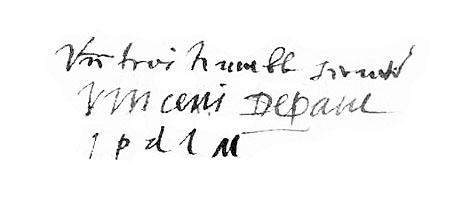 Vre tres humble
Vincent Depaul
i p d l M